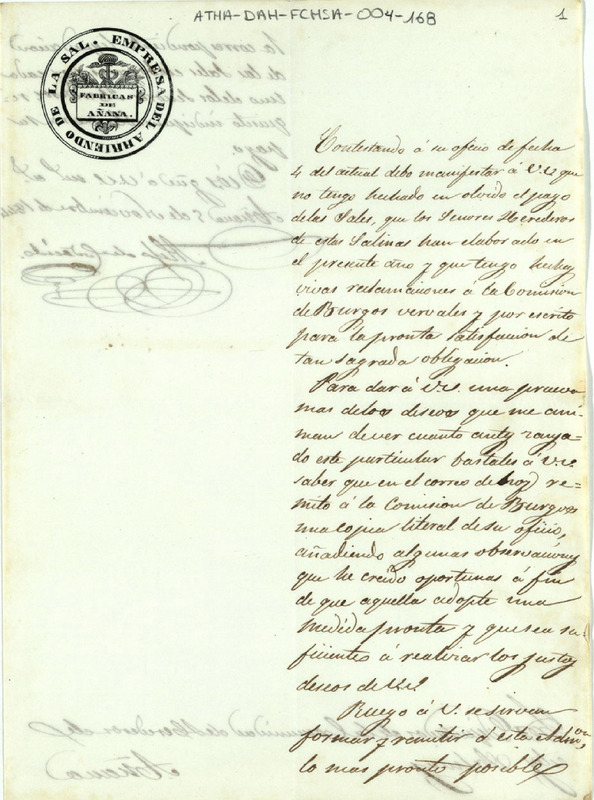 ATHA-DAH-FCHSA-004-168
1
EMPRESA DEL ARRIENDO DE LA SAL.
FABRICAS
DE
AÑANA.
Contestando á su oficio de fecha
4 del actual debo manifestar á V.V. que
no tengo hechado en olvido el pago
de las Sales, que los Senores Herederos
de estas Salinas han elaborado en
el presente año y que tengo hechas
vivas reclamaciones á la Comision
de Burgos vervales y por escrito
para la pronta satisfacion de
tan sagrada obligacion.
Para dar á V.V. una prueva
mas de los deseos que me ani-
man de ver cuanto antes zanja-
do este particular bastales á V.V.
saber que en el correo de hoy re-
mito á la Comision de Burgos
una copia literal de su oficio,
añadiendo algunas observaciones
que he creido oportunas á fin
de que aquella adopte una
medida pronta y que sea su-
ficiente á realizar los justos
deseos de V.V.
Ruego á V. se sirvan
formar y remitir á esta Admon
lo mas pronto posible